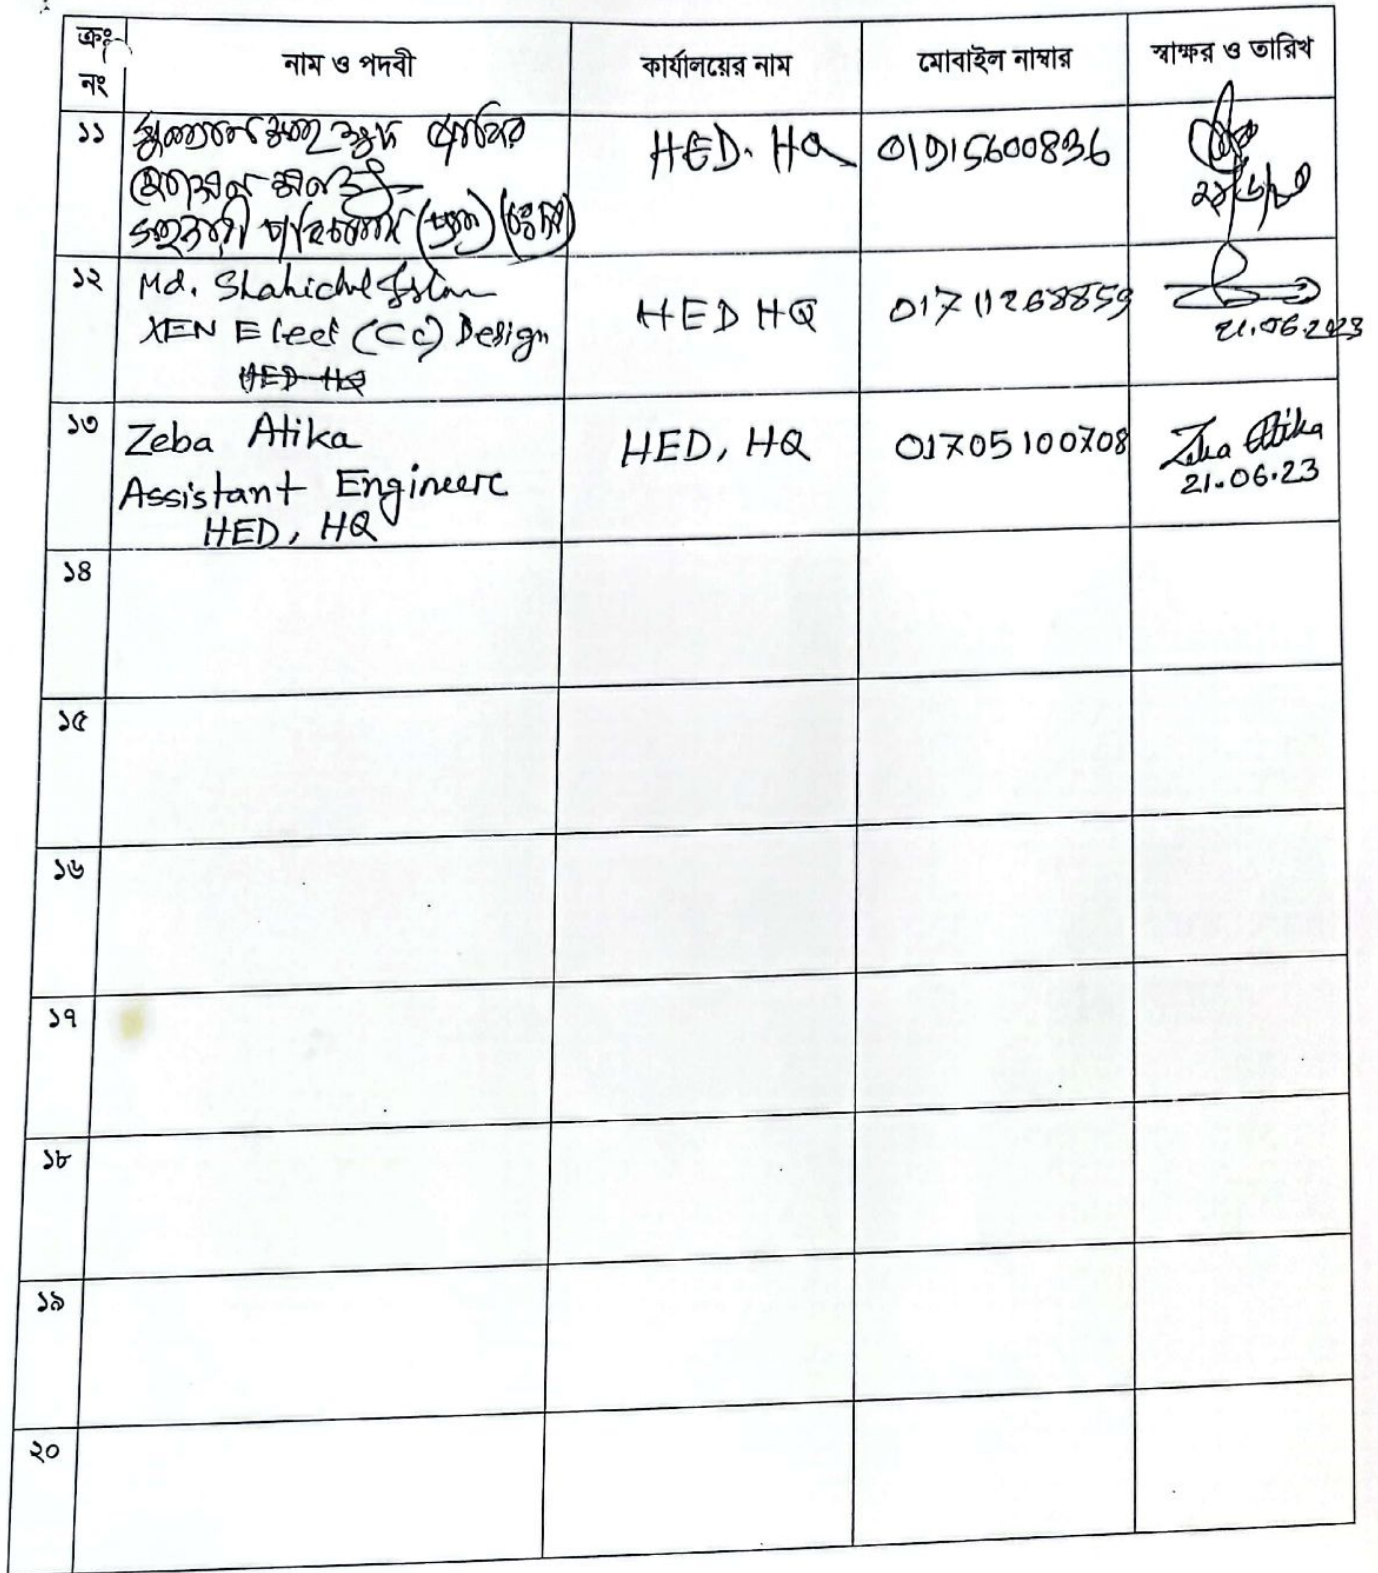 ক্রঃ নং
নাম ও পদবী
কার্যালয়ের নাম
মোবাইল নাম্বার
স্বাক্ষর ও তারিখ
১১
HED. HQ
01915600836
১২
Md. Shahidul Islam
XEN Elect (CC) Design
HED HQ
HED HQ
01711268859
21.06.2023
১৩
Zeba Atika
Assistant Engineer
HED, HQ
HED, HQ
01705100708
Zeba Atika
21.06.23
১৪
১৫
১৬
১৭
১৮
১৯
২০